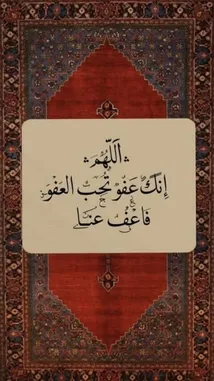 اَللّٰهُمَّ
إِنَّكَ عَفُوٌّ تُحِبُّ الْعَفْوَ
فَاعْفُ عَنَّا